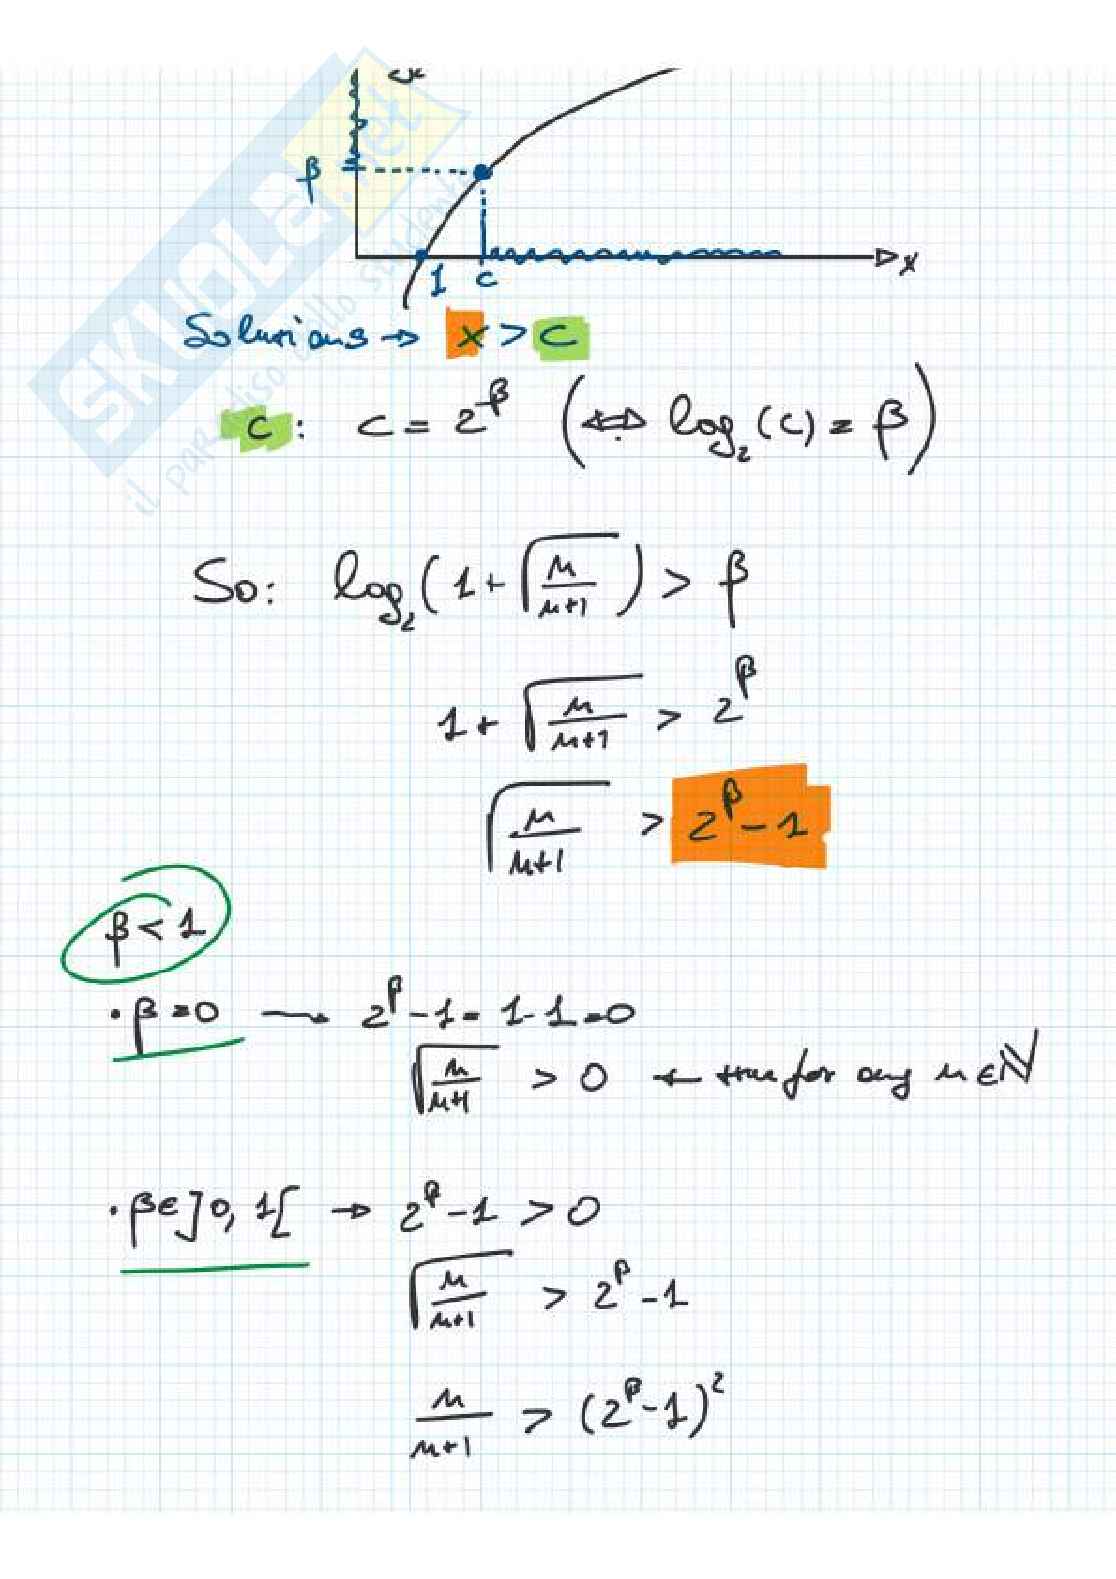 β
1 c x
Solutions → x > c
c : c = 2^β (⇔ log₂(c) = β)
So: log₂(1 + √(n/(n+1))) > β
1 + √(n/(n+1)) > 2^β
√(n/(n+1)) > 2^β - 1
β < 1
• β = 0 → 2^β - 1 = 1 - 1 = 0
√(n/(n+1)) > 0 ← true for any n ∈ ℕ
• β ∈ ]0, 1[ → 2^β - 1 > 0
√(n/(n+1)) > 2^β - 1
n/(n+1) > (2^β - 1)²
SKUOLA.net
il paradiso dello studente